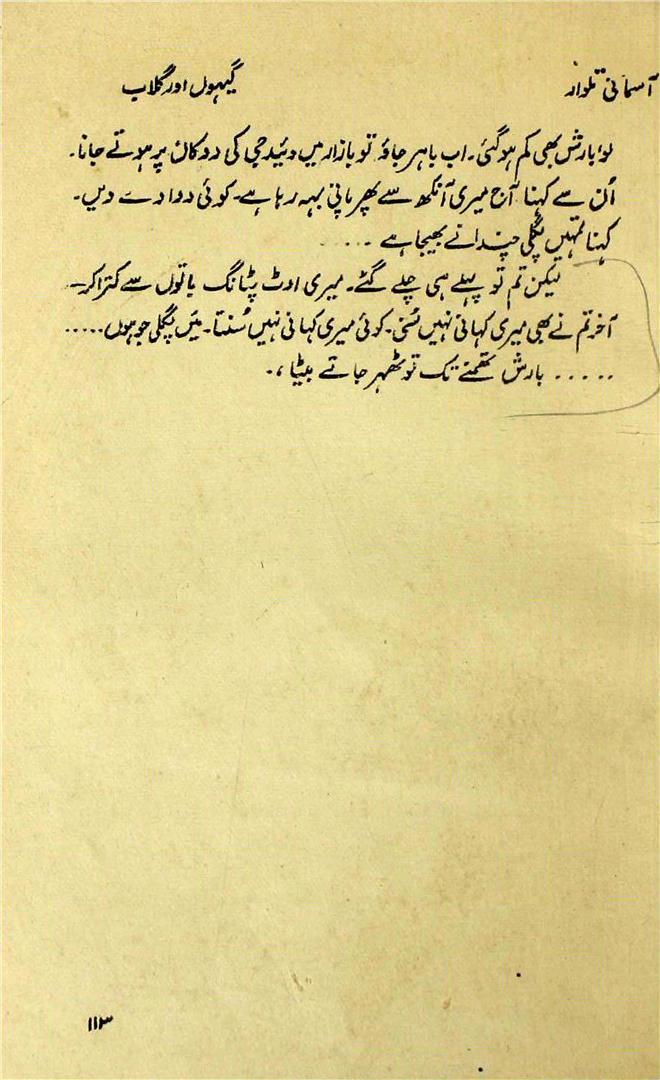 آسمانی تلوار
گیہوں اور گلاب
لو بارش بھی کم ہوگئی۔ اب باہر جاؤ تو بازار میں وئیدجی کی دوکان پر ہوتے جانا۔
اُن سے کہنا آج میری آنکھ سے پھر پانی بہہ رہا ہے۔ کوئی دوا دے دیں۔
کہنا تمہیں پگلی چندا نے بھیجا ہے ۔....
لیکن تم تو پہلے ہی چلے گئے۔ میری اوٹ پٹانگ باتوں سے کترا کر۔
آخر تم نے بھی میری کہانی نہیں سُنی۔ کوئی میری کہانی نہیں سُنتا۔ میَں پگلی جو ہوں.....
..... بارش تھمنے تک تو ٹھہر جاتے بیٹا ،۔
۱۱۳